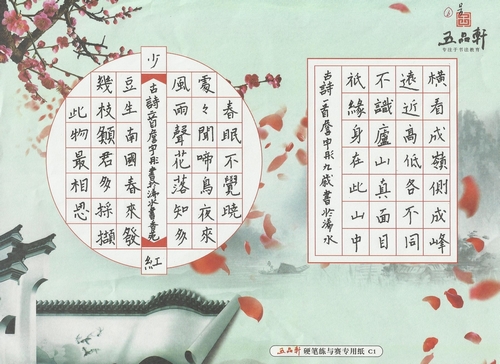 五品軒
专注于书法教育
横看成嶺側成峰
遠近高低各不同
不識廬山真面目
祇緣身在此山中
古詩一首詹中彤九歲書於浠水
春眠不覺曉
處々聞啼鳥夜來
風雨聲花落知多
少
古詩二首詹中彤書於浠水書意苑
紅
豆生南國春來發
幾枝願君多採擷
此物最相思
五品軒 硬笔练与赛专用纸 C1